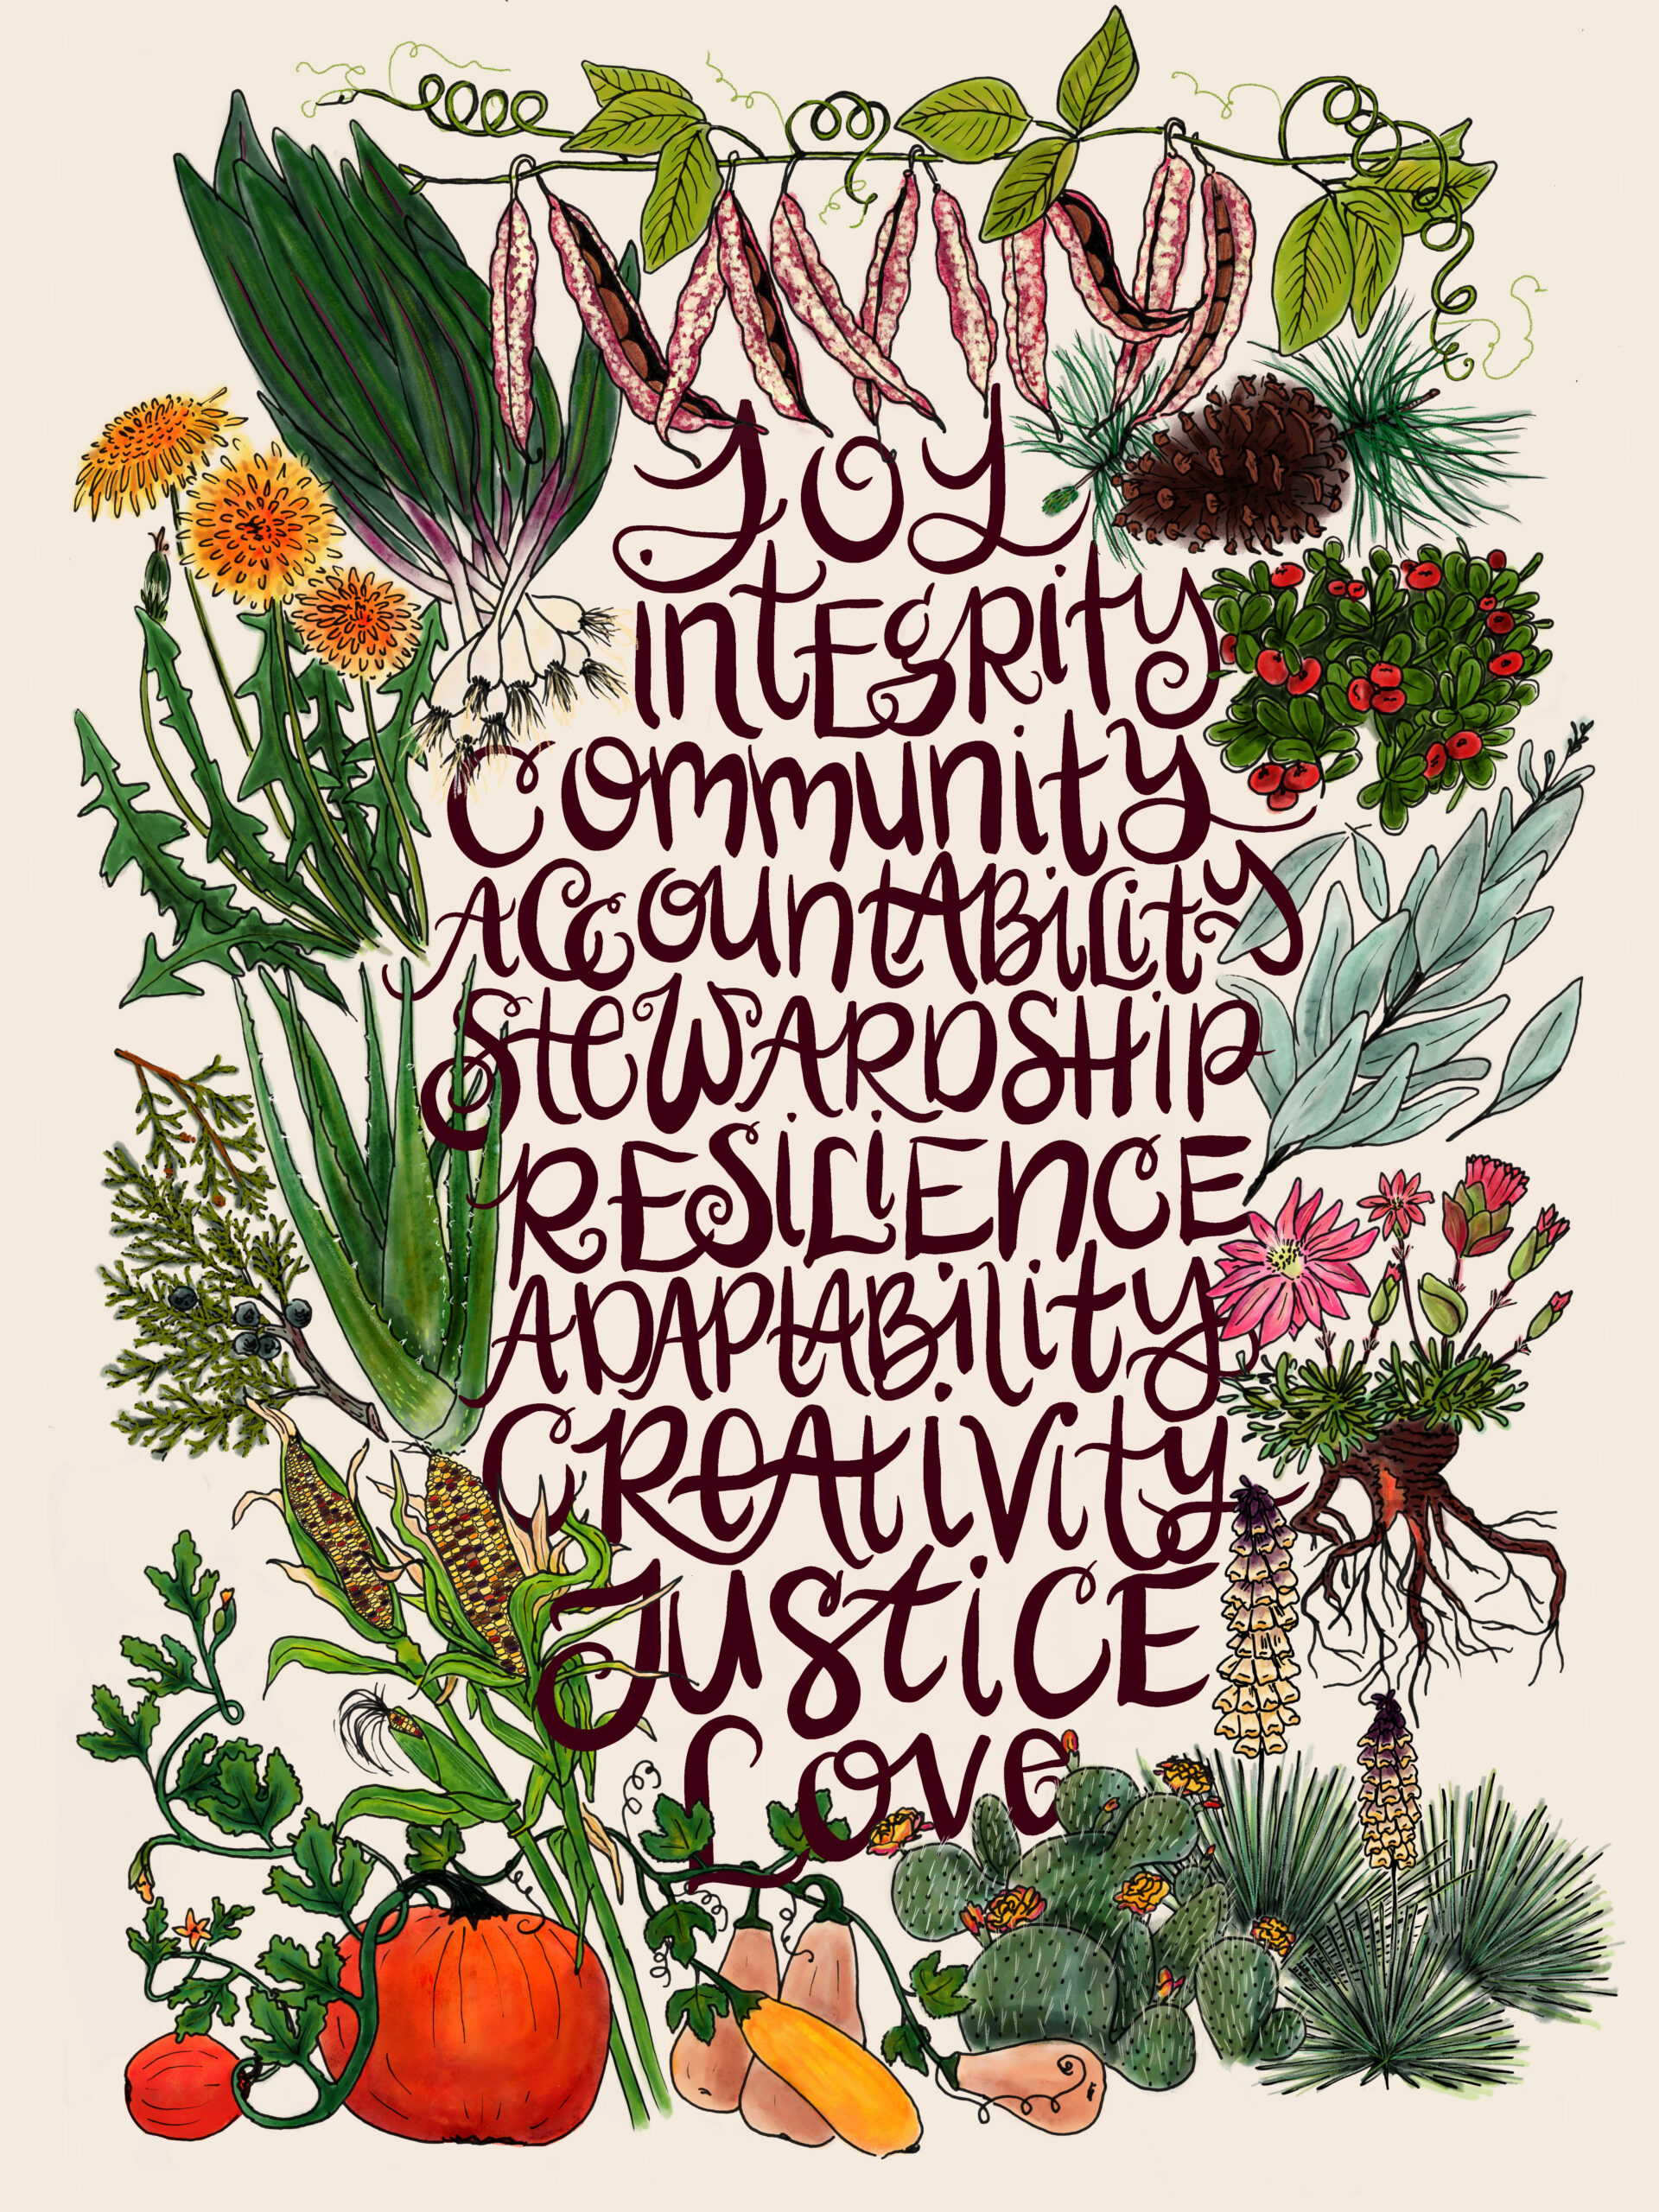 Joy
integrity
community
Accountability
stewardship
Resilience
Adaptability
Creativity
Justice
Love